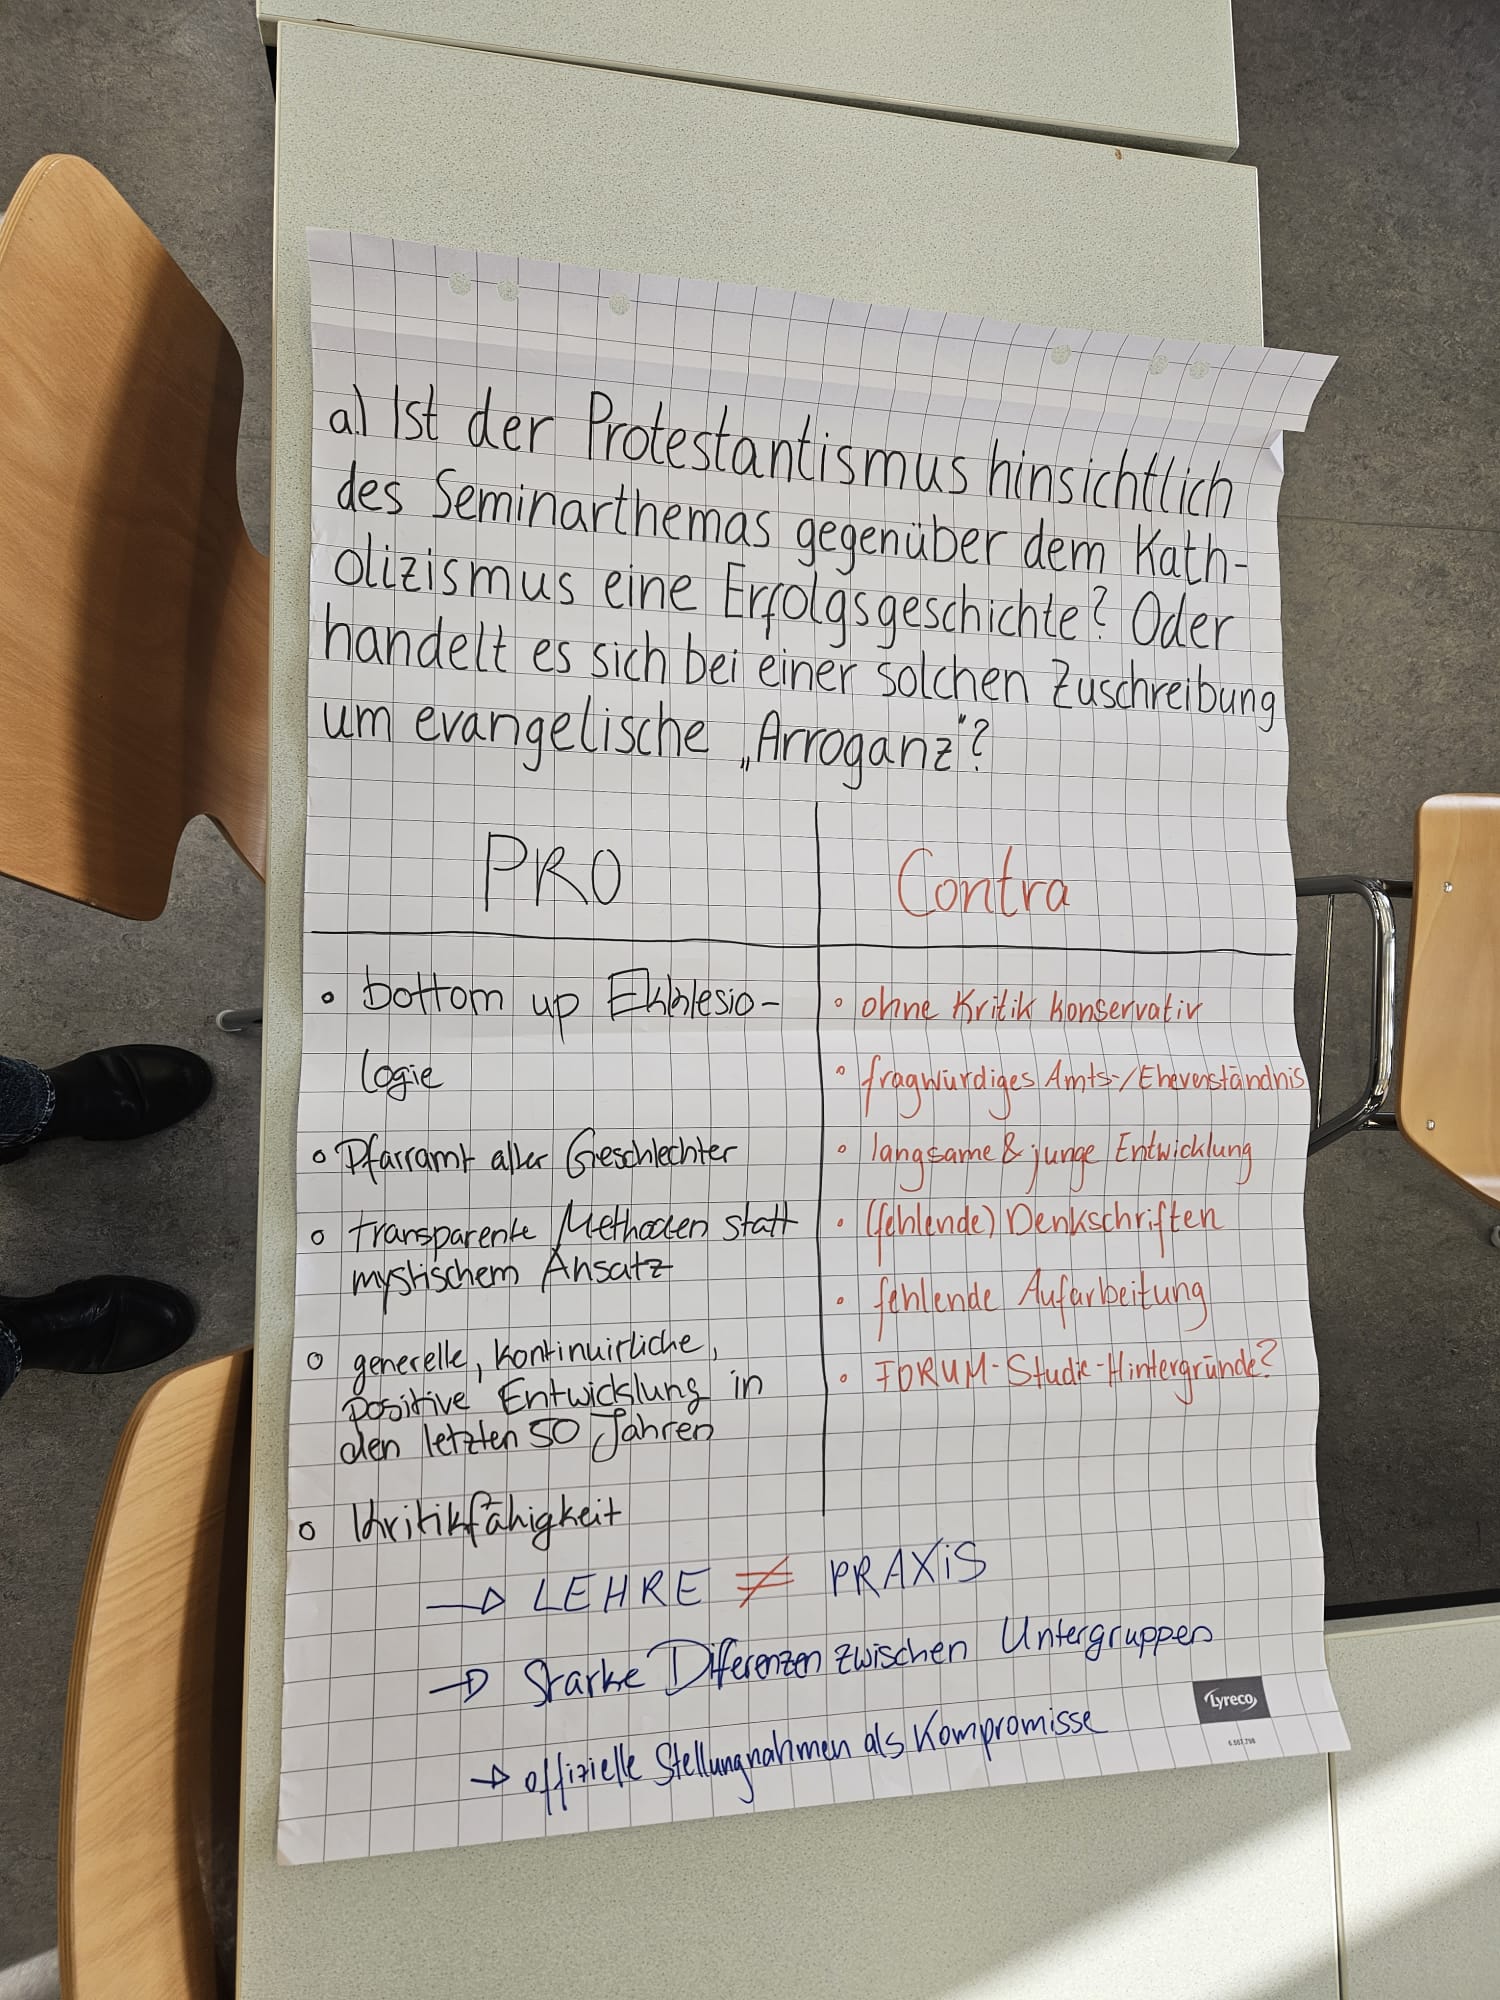 a.) Ist der Protestantismus hinsichtlich
des Seminarthemas gegenüber dem Kath-
olizismus eine Erfolgsgeschichte? Oder
handelt es sich bei einer solchen Zuschreibung
um evangelische „Arroganz“?
PRO
Contra
• bottom up Ekklesio-
logie
• Pfarramt aller Geschlechter
• transparente Methoden statt
mystischem Ansatz
• generelle, kontinuirliche,
positive Entwicklung in
den letzten 50 Jahren
• Kritikfähigkeit
• ohne Kritik konservativ
• fragwürdiges Amts-/Eheverständnis
• langsame & junge Entwicklung
• (fehlende) Denkschriften
• fehlende Aufarbeitung
• FORUM-Studie-Hintergründe?
→ LEHRE ≠ PRAXiS
→ Starke Differenzen zwischen Untergruppen
→ offizielle Stellungnahmen als Kompromisse
Lyreco